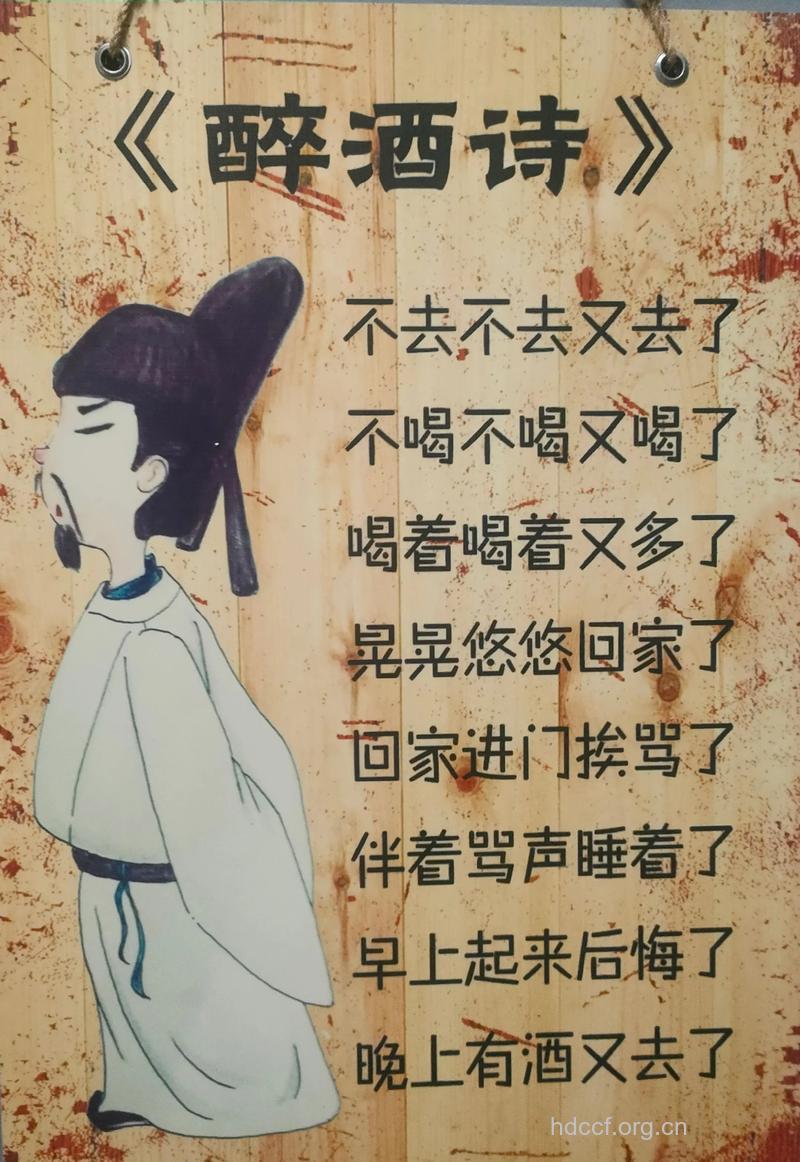 《醉酒诗》
不去不去又去了
不喝不喝又喝了
喝着喝着又多了
晃晃悠悠回家了
回家进门挨骂了
伴着骂声睡着了
早上起来后悔了
晚上有酒又去了
hdccf.org.cn